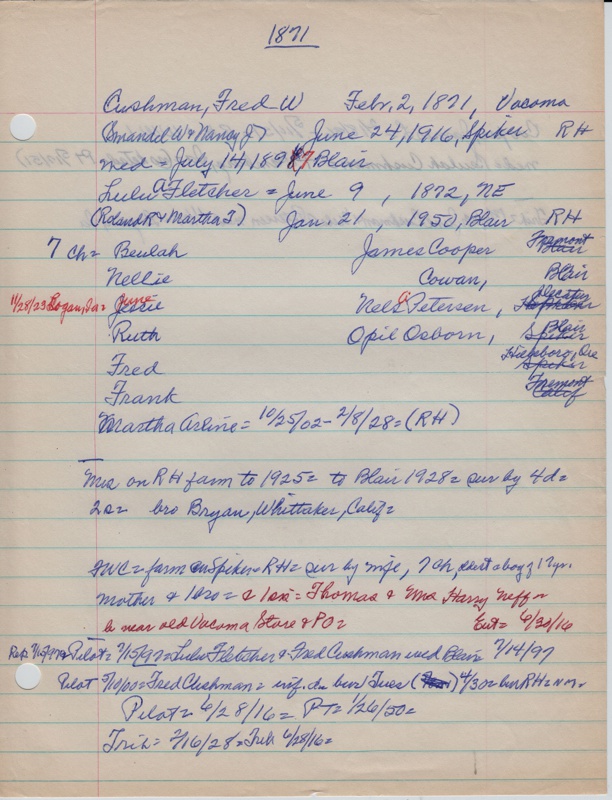 1871
Cushman, Fred W Febr. 2, 1871, Vacoma
(Amandel W & Nancy J) June 24, 1916, Spiker RH
med = July 14, 1897, Blair
Lulu A Fletcher = June 9, 1872, NE
(Roland R & Martha T) Jan. 21, 1950, Blair RH
7 ch = Beulah James Cooper Fremont Blair
Nellie Cowan, Blair
11/28/23 Logan, Ia = June Jessie Nels Petersen, Decatur
Ruth Opil Osborn, Blair Spiker
Fred Hillsboro, Ore Spiker
Frank Fremont Calif
Martha Arline = 10/25/02 - 2/8/28 = (RH)
Mrs on RH farm to 1925 = to Blair 1928 = sur by 4 d =
2 s = bro Bryan, Whittaker, Calif =
FWC = farm on Spiker = RH = sur by wife, 7 ch, 17 yr.
mother & bro = & 1 sis = Thomas & Mrs Harry Neff =
b near old Vacoma Store & PO = Ent = 6/30/16
Rep. Pilot = 7/15/97 = Lulu Fletcher & Fred Cushman med Blair 7/14/97
Pilot 5/10/00 = Fred Cushman = inf. d bur Tues 4/30 = bur RH =
Pilot = 6/28/16 = PT = 1/26/50 =
Trib = 2/16/28 = Trib 6/28/16 =